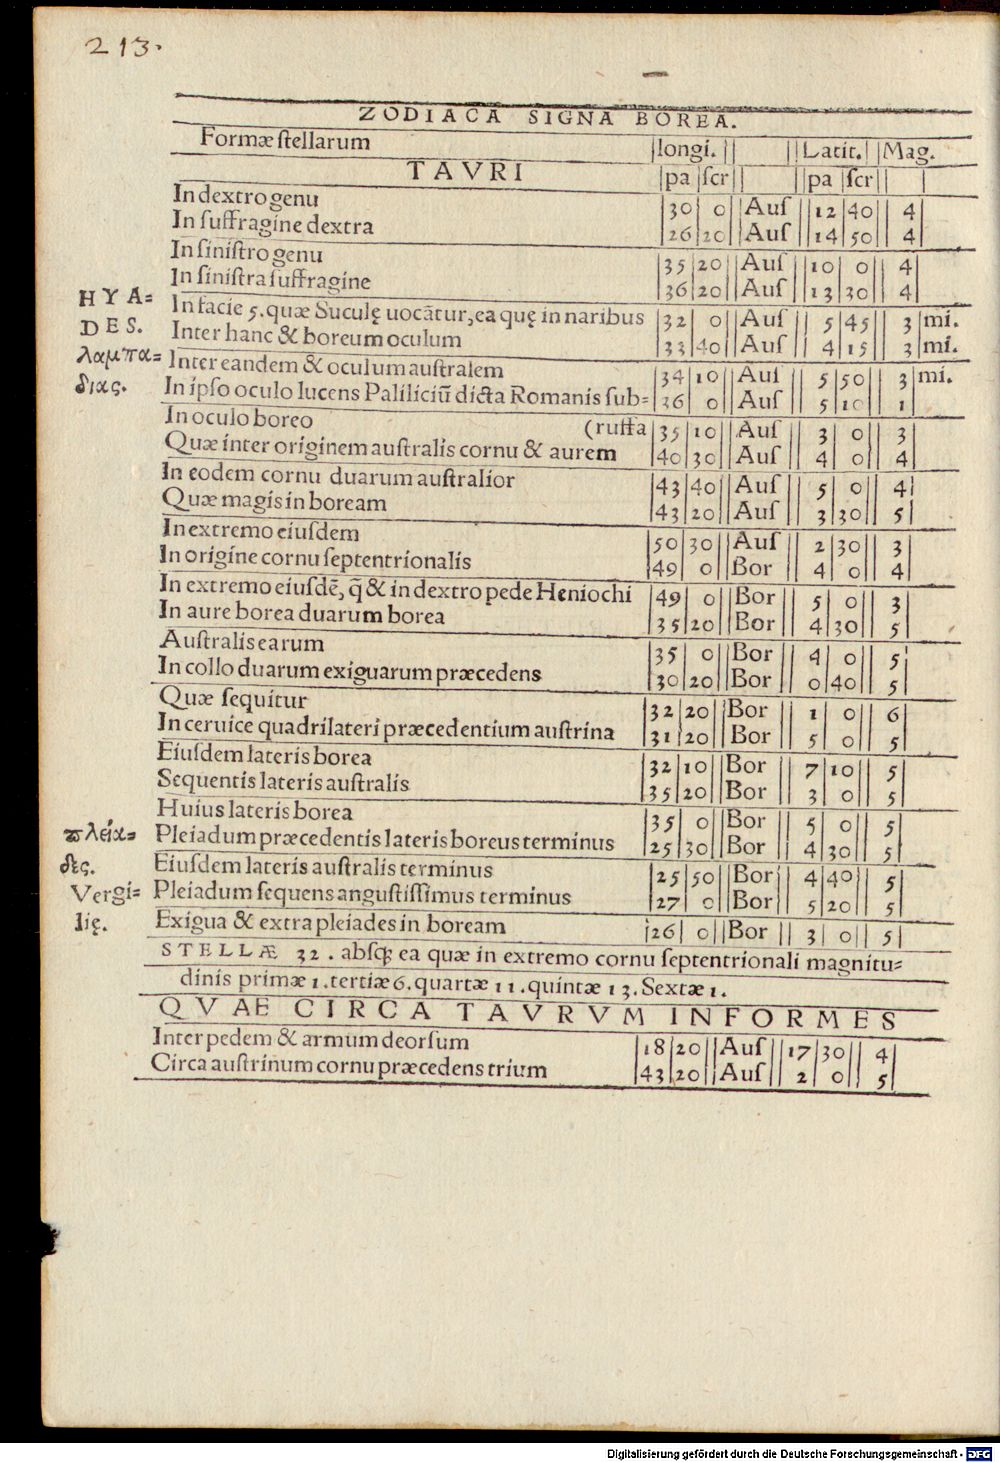 213.
ZODIACA SIGNA BOREA.
Formæ stellarum |longi.| | | |Latit.| |Mag.
TAVRI |pa |scr| | |pa |scr| |
In dextro genu |30| 0| |Auſ |12|40| 4
In ſuffragine dextra |26|20| |Auſ |14|50| 4
In ſiniſtro genu |35|20| |Auſ |10| 0| 4|
In ſiniſtra ſuffragine |36|20| |Auſ |13|30| 4|
HYA=
DES.
λαμπα=
διας.
In facie 5. quæ Suculę uocãtur, ea quę in naribus |32| 0| |Auſ | 5|45| 3|mi.
Inter hanc & boreum oculum |33|40| |Auſ | 4|15| 3|mi.
Inter eandem & oculum auſtralem |34|10| |Auſ | 5|50| 3|mi.
In ipſo oculo lucens Paliliciũ dicta Romanis ſub= |36| 0| |Auſ | 5|10| 1|
In oculo boreo (ruffa |35|10| |Auſ | 3| 0| 3|
Quæ inter originem auſtralis cornu & aurem |40|30| |Auſ | 4| 0| 4|
In eodem cornu duarum auſtralior |43|40| |Auſ | 5| 0| 4|
Quæ magis in boream |43|20| |Auſ | 3|30| 5|
In extremo eiuſdem |50|30| |Auſ | 2|30| 3|
In origine cornu ſeptentrionalis |49| 0| |Bor | 4| 0| 4|
In extremo eiuſdẽ, q̃ & in dextro pede Heniochi |49| 0| |Bor | 5| 0| 3|
In aure borea duarum borea |35|20| |Bor | 4|30| 5|
Auſtralis earum |35| 0| |Bor | 4| 0| 5|
In collo duarum exiguarum præcedens |30|20| |Bor | 0|40| 5|
Quæ ſequitur |32|20| |Bor | 1| 0| 6|
In ceruice quadrilateri præcedentium auſtrina |31|20| |Bor | 5| 0| 5|
Eiuſdem lateris borea |32|10| |Bor | 7|10| 5|
Sequentis lateris auſtralis |35|20| |Bor | 3| 0| 5|
Huius lateris borea |35| 0| |Bor | 5| 0| 5|
ϖλεία=
δες.
Vergi=
lię.
Pleiadum præcedentis lateris boreus terminus |25|30| |Bor | 4|30| 5|
Eiuſdem lateris auſtralis terminus |25|50| |Bor| 4|40| 5|
Pleiadum ſequens anguſtiſſimus terminus |27| 0| |Bor| 5|20| 5|
Exigua & extra pleiades in boream |26| 0| |Bor | 3| 0| 5|
STELLÆ 32. abſq; ea quæ in extremo cornu ſeptentrionali magnitu=
dinis primæ 1. tertiæ 6. quartæ 11. quintæ 13. Sextæ 1.
QVAE CIRCA TAVRVM INFORMES
Inter pedem & armum deorſum |18|20| |Auſ |17|30| 4|
Circa auſtrinum cornu præcedens trium |43|20| |Auſ | 2| 0| 5|
Digitalisierung gefördert durch die Deutsche Forschungsgemeinschaft - DFG